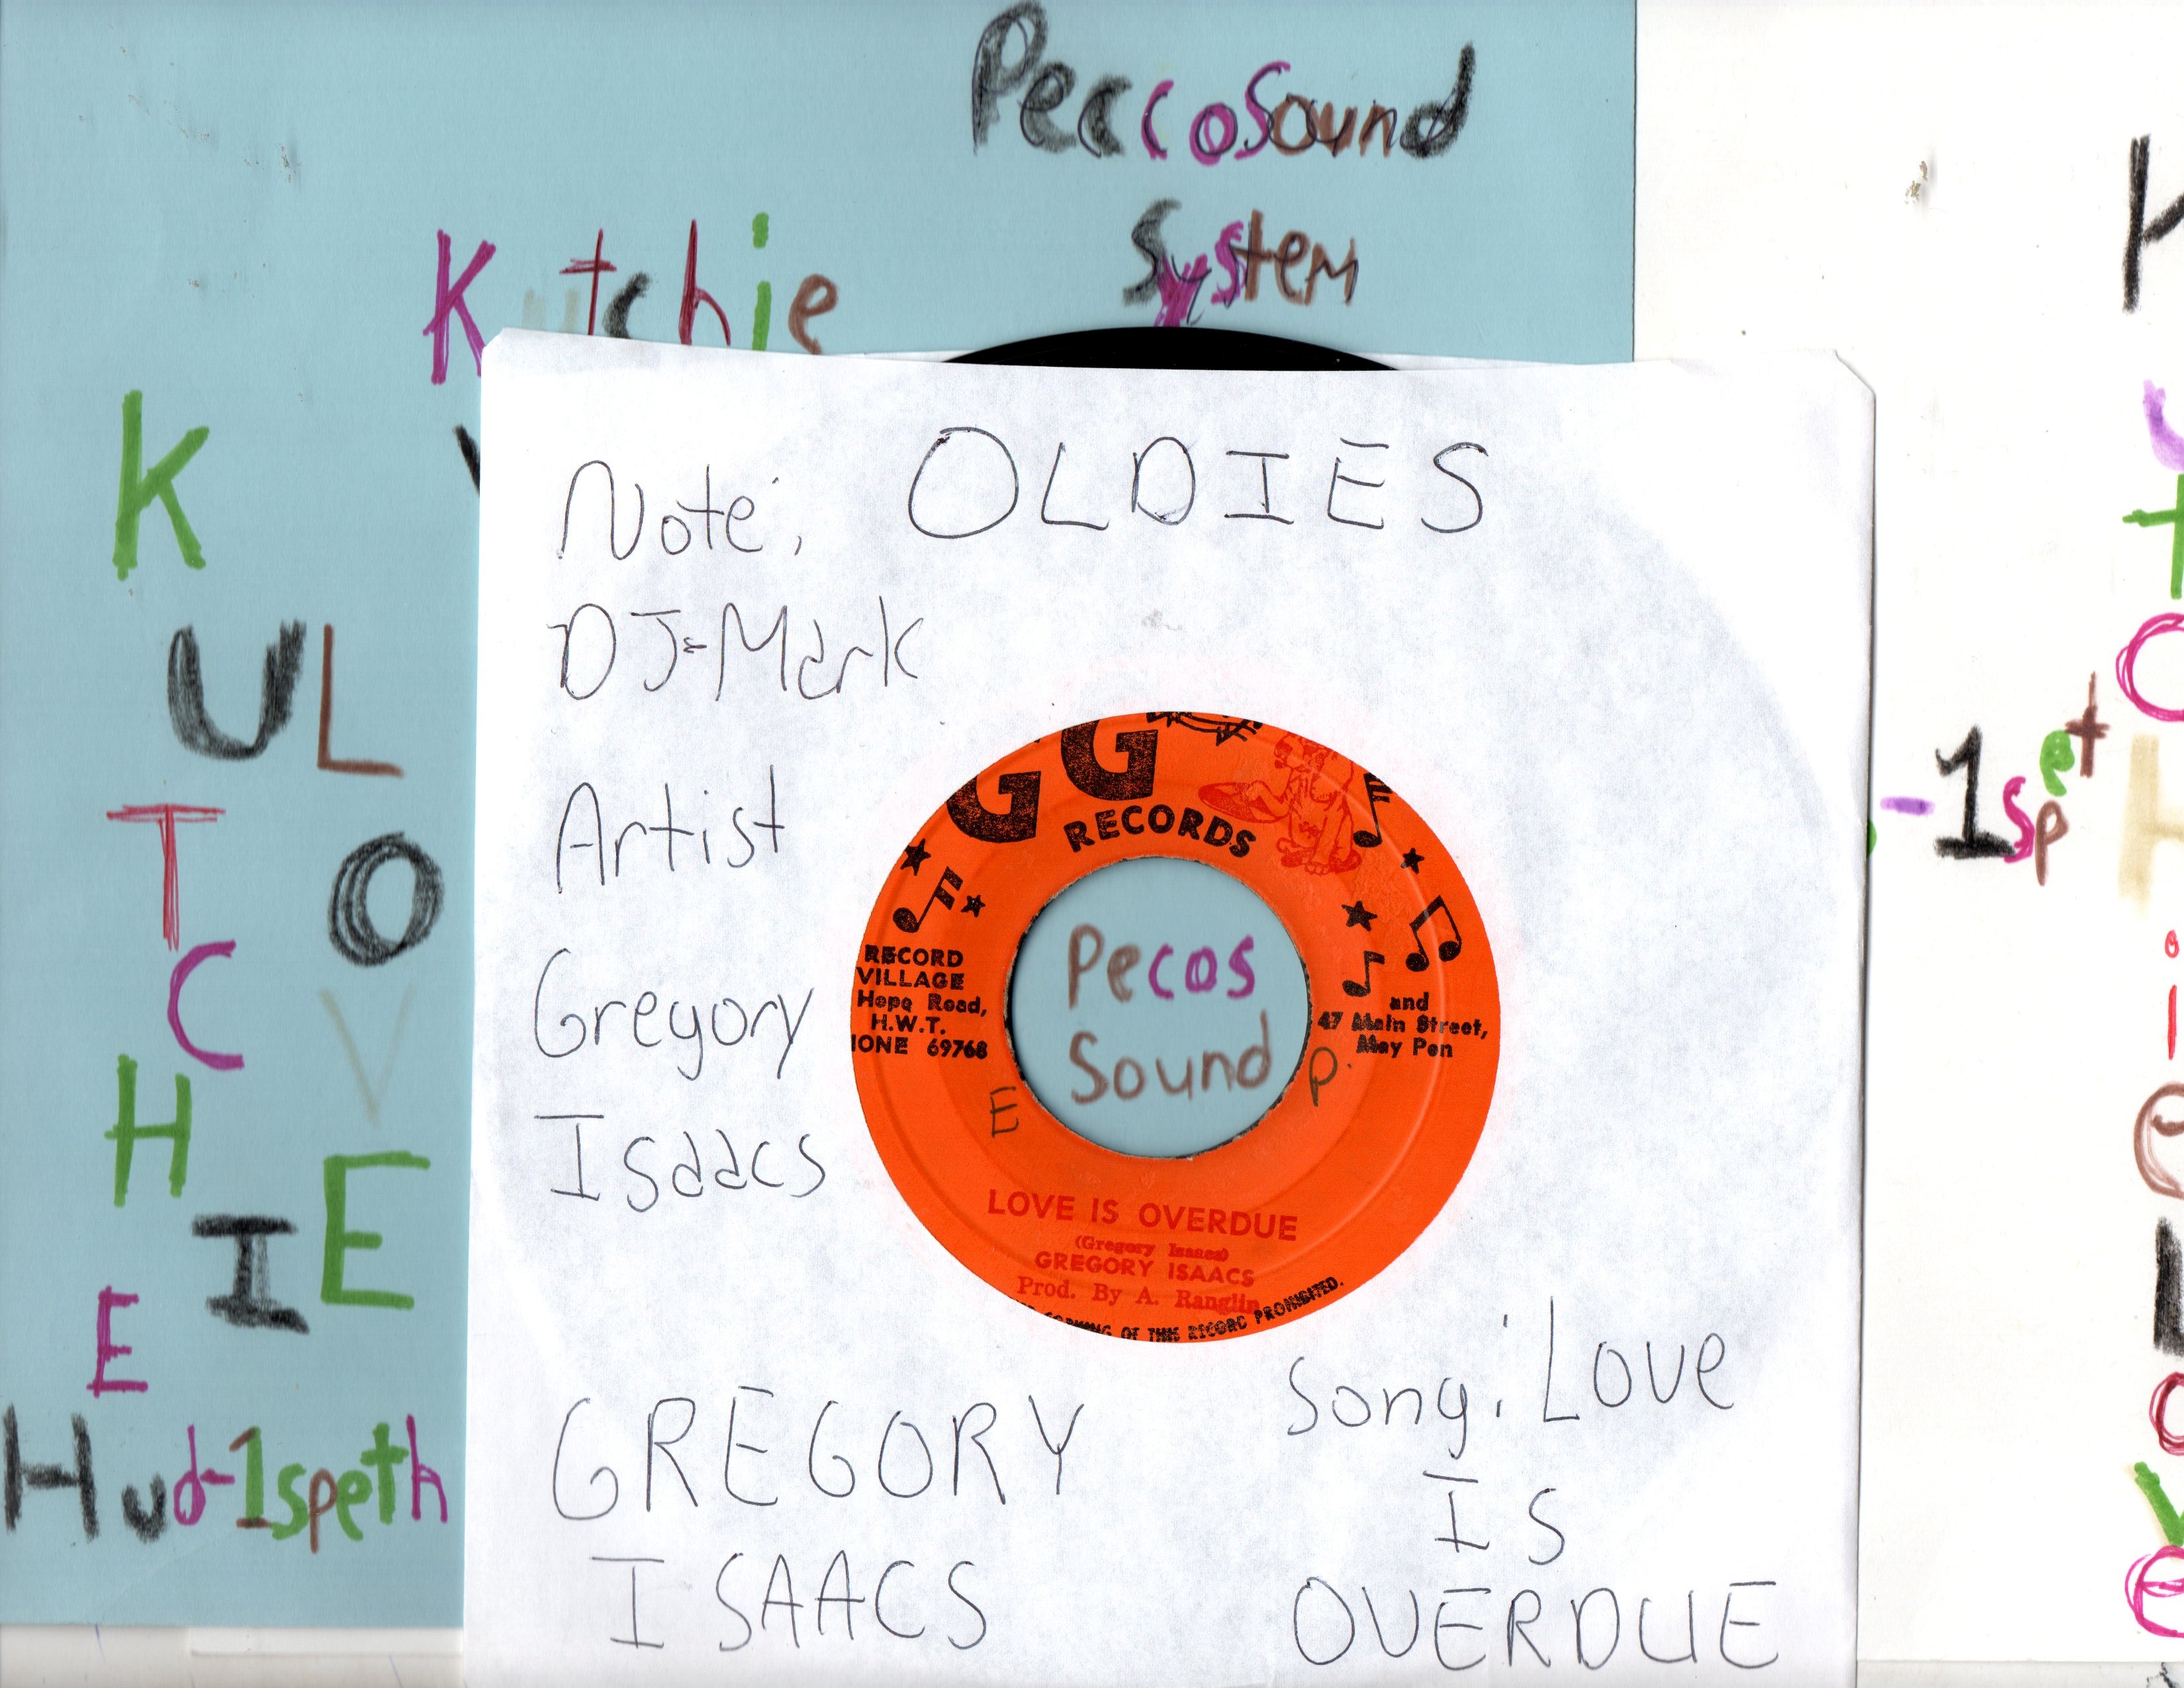 PeccoSound
System
Kutchie
K
U L
T
O
C
V
H
E
I
E
Hud-1speth
OLDIES
Note:
DJ-Mark
Artist
Gregory
Isaacs
GG
RECORDS
RECORD
VILLAGE
Hope Road,
H.W.T.
IONE 69768
and
47 Main Street,
May Pen
Pecos
Sound
E
P.
LOVE IS OVERDUE
(Gregory Isaacs)
GREGORY ISAACS
Prod. By A. Ranglin
OF THIS RECORD PROHIBITED.
GREGORY
ISAACS
Song: Love
Is
OVERDUE
-1spet
K
u
t
C
H
i
e
L
o
v
e